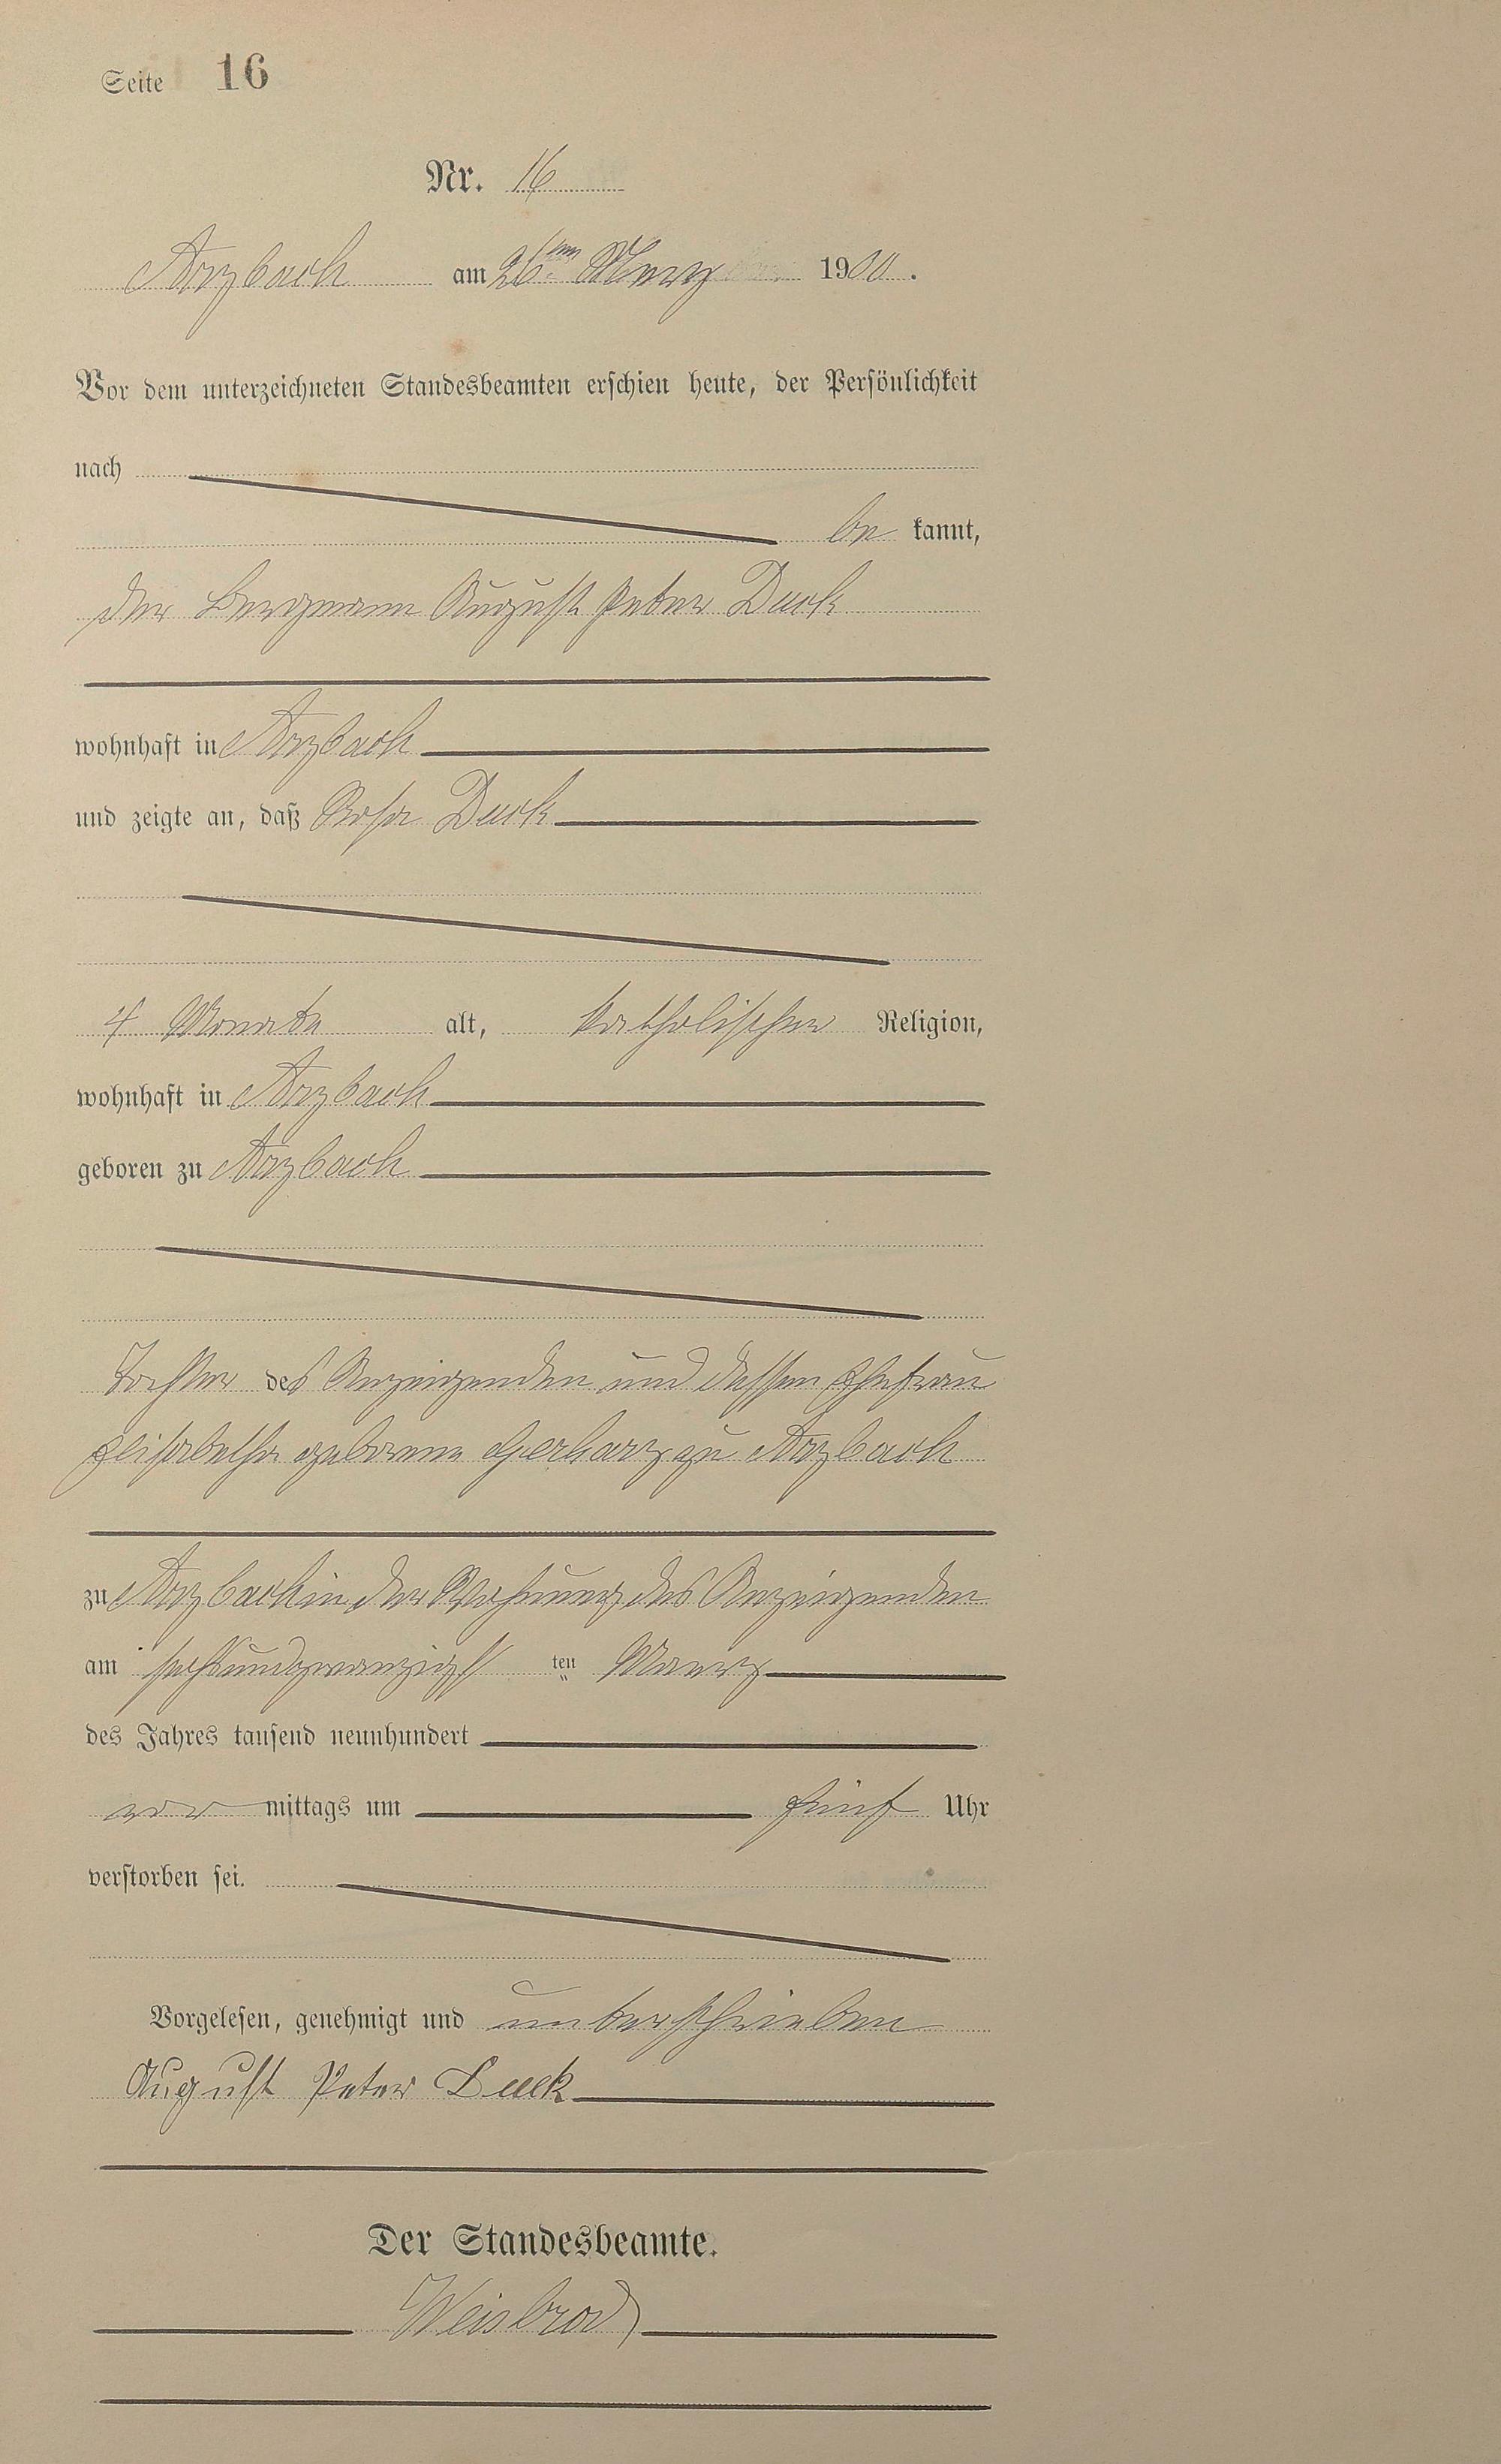 Seite 16
Nr. 16
Arzbach am 26ten März 1900.
Vor dem unterzeichneten Standesbeamten erschien heute, der Persönlichkeit
nach
be kannt,
der Bergmann August Peter Duck
wohnhaft in Arzbach
und zeigte an, daß Rosa Duck
4 Monate alt, katholischer Religion,
wohnhaft in Arzbach
geboren zu Arzbach
Tochter des Anzeigenden und dessen Ehefrau
Elisabetha geborene Gerharz zu Arzbach
zu Arzbach in der Wohnung des Anzeigenden
am sechsundzwanzigsten März
des Jahres tausend neunhundert
vor mittags um fünf Uhr
verstorben sei.
Vorgelesen, genehmigt und unterschrieben
August Peter Duck
Der Standesbeamte.
Weisbrod